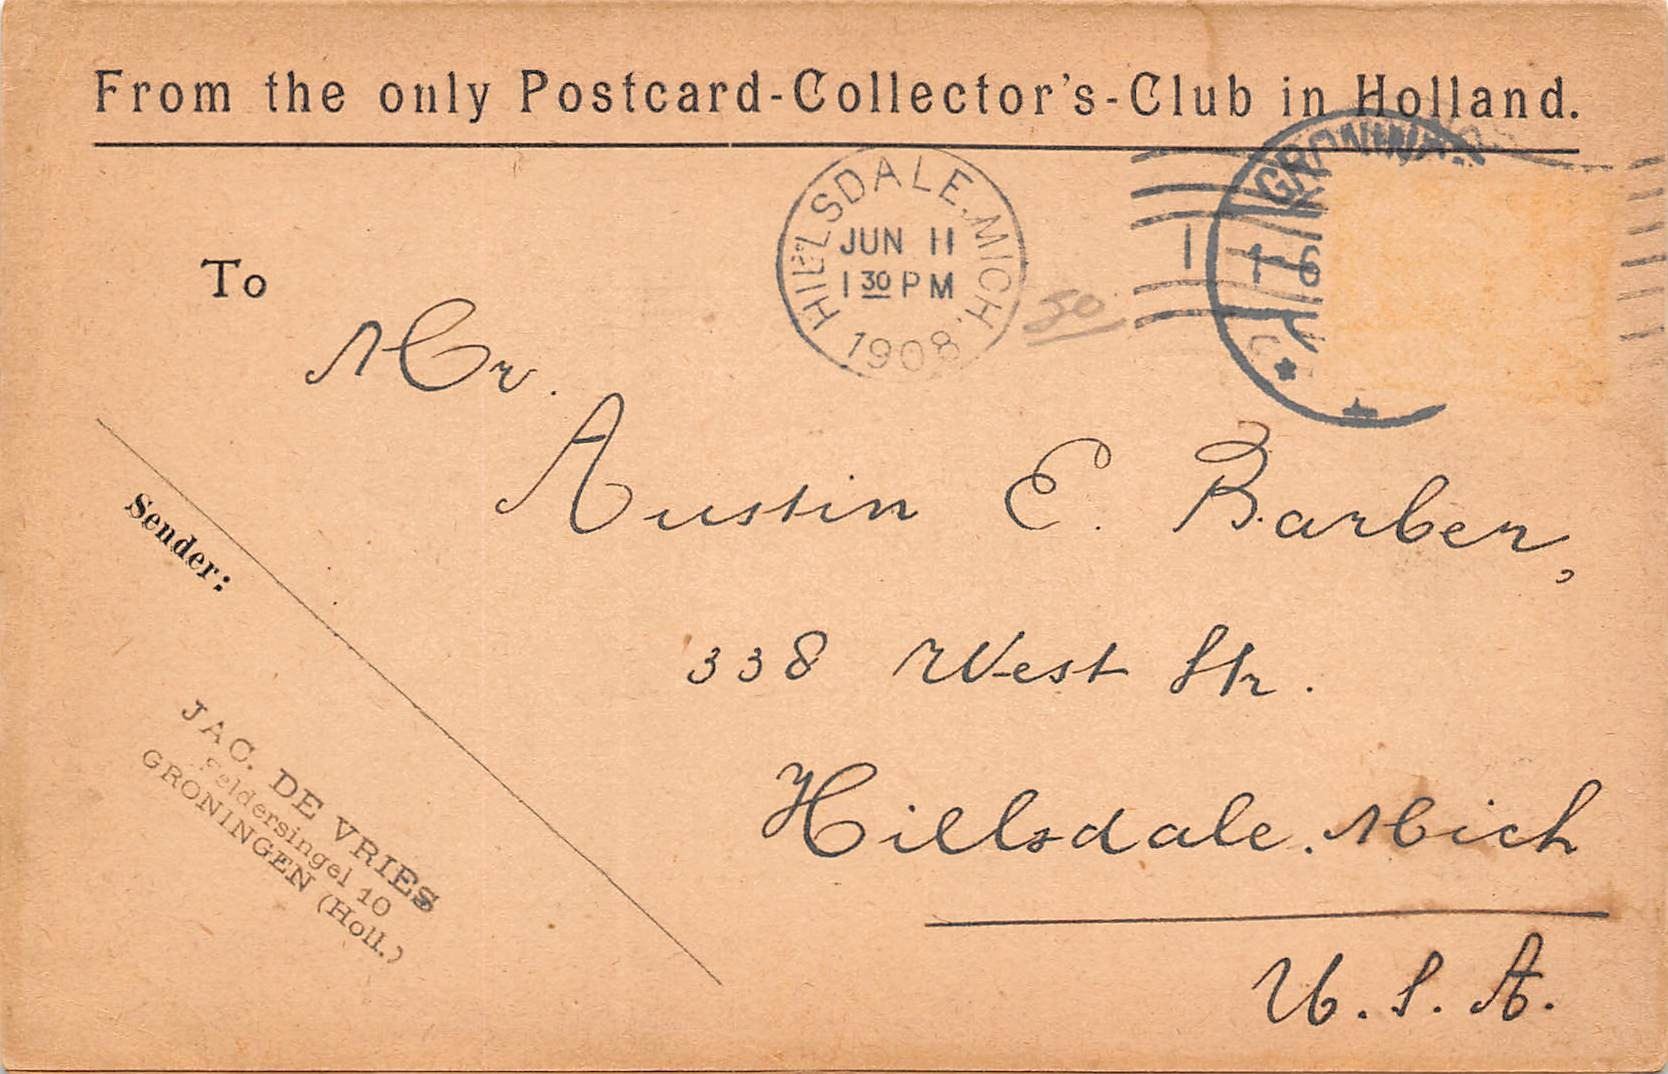 From the only Postcard-Collector's-Club in Holland.
HILLSDALE, MICH.
JUN 11
1 30 PM
1908
1
1-6
50
To
Mr.
Austin E. Barber,
338 West Str.
Hillsdale. Mich
U. S. A.
Sender:
JAC. DE VRIES
eldersingel 10
GRONINGEN (Holl.)